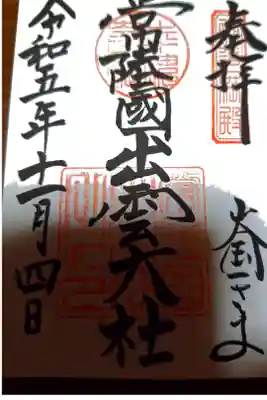 奉拝
大国さま
常陸國出雲大社
令和五年十一月四日